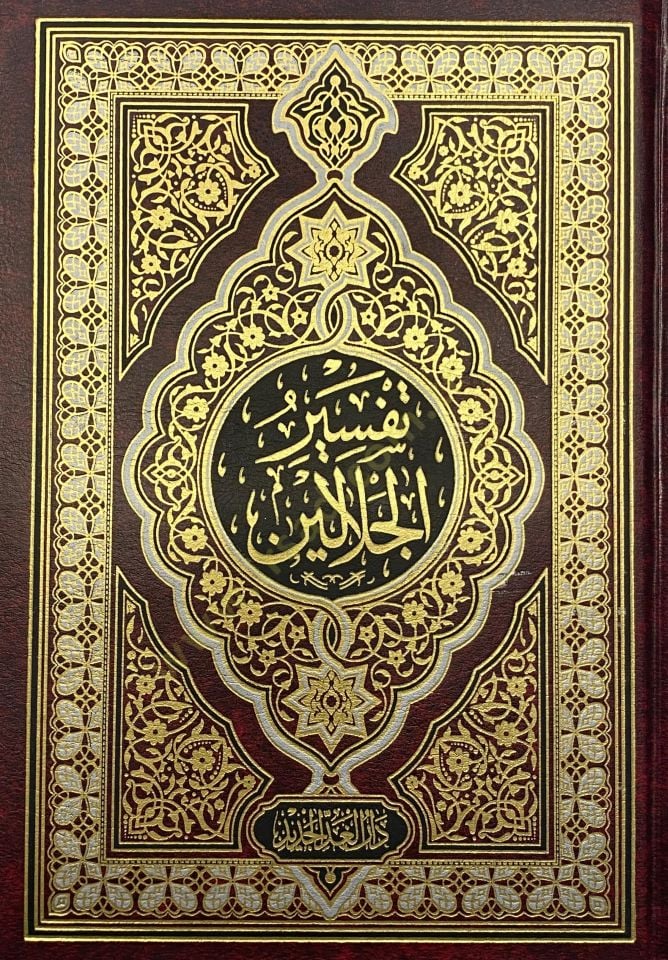 تَفْسِيرُ
الجَلَالَين
دَارُ الغَدِ الجَدِيد